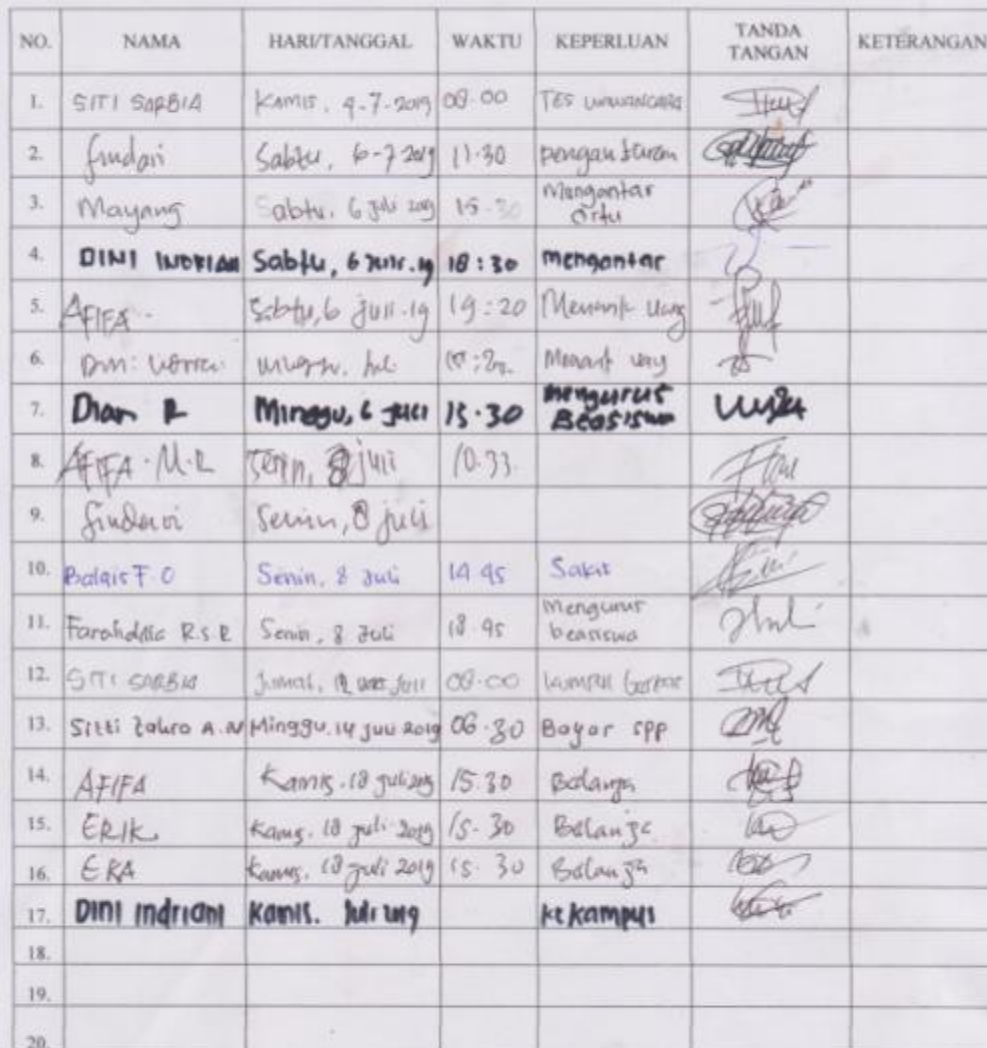 NO. NAMA HARI/TANGGAL WAKTU KEPERLUAN TANDA TANGAN KETERANGAN
1. SITI SARBIA Kamis, 4-7-2019 08.00 TES WAWANCARA
2. Sabtu, 6-7 2019 11.30
3. Mayang Sabtu, 6 Juli 2019 15.30 Mengantar Ortu
4. DINI INDRIAN Sabtu, 6 Juli.19 18:30 mengantar
5. AFIFA. Sabtu, 6 Juli.19 19:20 Menarik Uang
6.
7. Dian R Minggu, 6 Juli 15.30 mengurus Beasiswa
8. AFIFA.M.R Senin, 8 juli 10.33
9. Senin, 8 juli
10. Balqis F.O Senin, 8 Juli 14 45 Sakit
11. R.S.R Senin, 8 Juli 18.45 Mengurus beasiswa
12. SITI SARBIA Jumat, Juli 08.00
13. Sitti Zahro A.N Minggu, 14 Juli 2019 06.30 Bayar SPP
14. AFIFA Kamis, 18 juli 2019 15.30 Belanja
15. ERIK Kamis, 18 juli 2019 15.30 Belanja
16. ERA Kamis, 18 juli 2019 15.30 Belanja
17. DINI Indriani Kamis. Juli 2019 ke kampus
18.
19.
20.